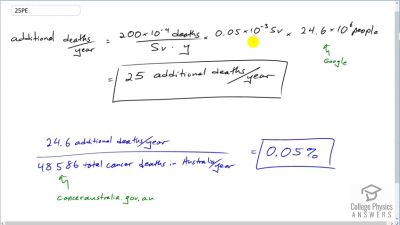 25PE
additional deaths/year = 200 × 10⁻⁴ deaths / Sv · y × 0.05 × 10⁻³ Sv × 24.6 × 10⁶ people
Google
= 25 additional deaths/year
24.6 additional deaths/year / 48586 total cancer deaths in Australia/year = 0.05%
canceraustralia.gov.au
College Physics
ANSWERS